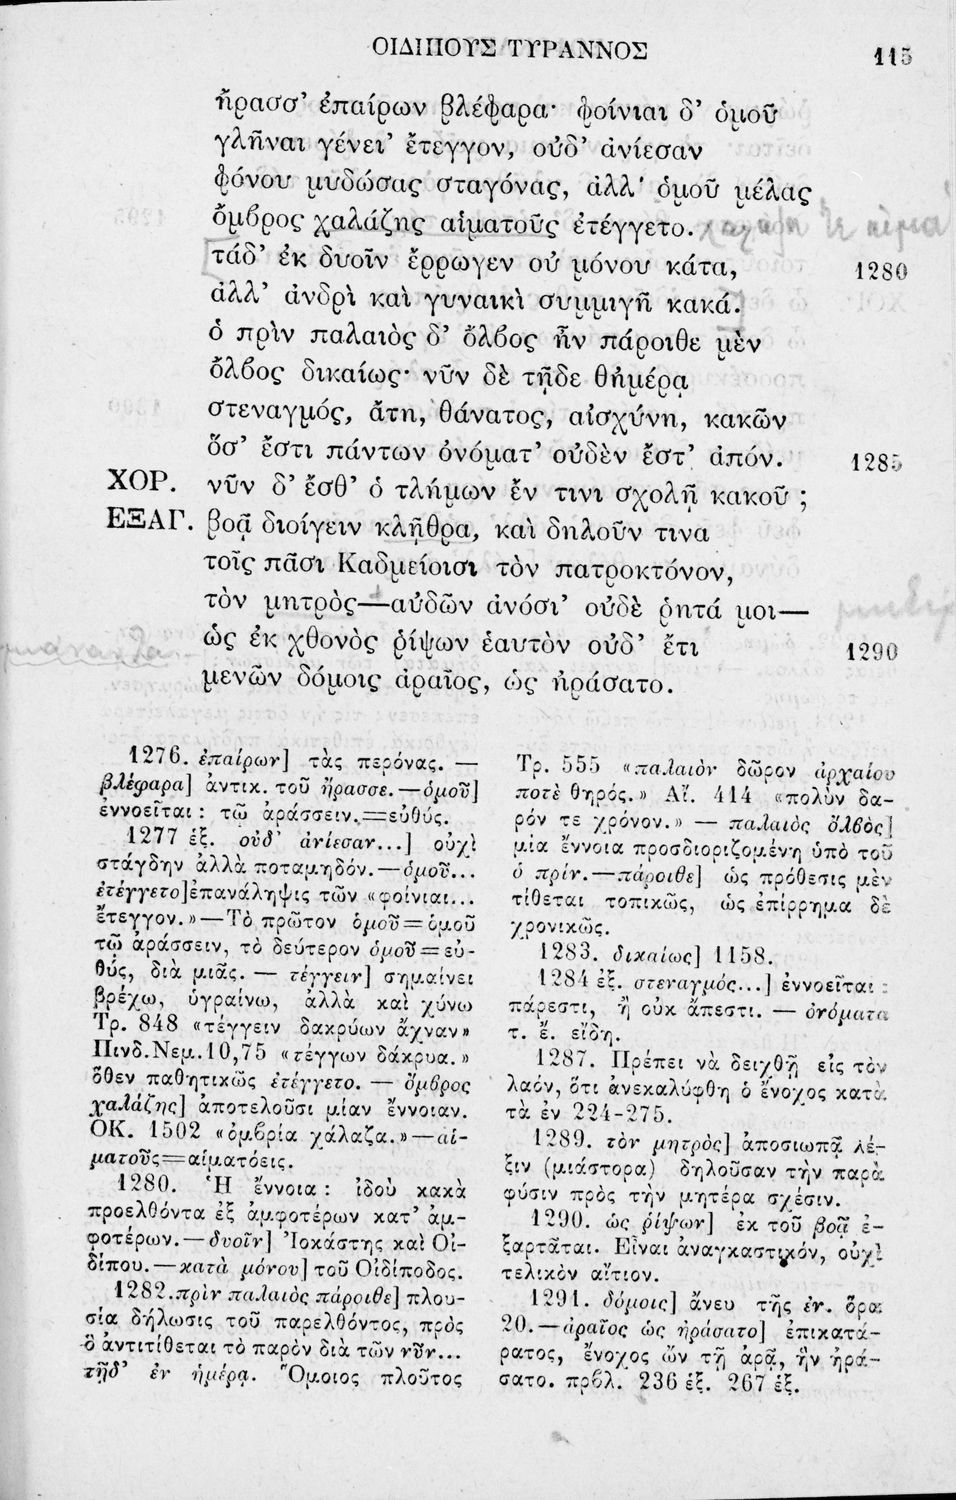 ΟΙΔΙΠΟΥΣ ΤΥΡΑΝΝΟΣ
115
ἤρασσ’ ἐπαίρων βλέφαρα· φοίνιαι δ’ ὁμοῦ
γλῆναι γένει’ ἔτεγγον, οὐδ’ ἀνίεσαν
φόνου μυδώσας σταγόνας, ἀλλ’ ὁμοῦ μέλας
ὄμβρος χαλάζης αἱματοῦς ἐτέγγετο.
τάδ’ ἐκ δυοῖν ἔρρωγεν οὐ μόνου κάτα, 1280
ἀλλ’ ἀνδρὶ καὶ γυναικὶ συμμιγῆ κακά.
ὁ πρὶν παλαιὸς δ’ ὄλβος ἦν πάροιθε μὲν
ὄλβος δικαίως· νῦν δὲ τῇδε θἠμέρᾳ
στεναγμός, ἄτη, θάνατος, αἰσχύνη, κακῶν
ὅσ’ ἔστι πάντων ὀνόματ’ οὐδὲν ἔστ’ ἀπόν. 1285
ΧΟΡ. νῦν δ’ ἔσθ’ ὁ τλήμων ἔν τινι σχολῇ κακοῦ ;
ΕΞΑΓ. βοᾷ διοίγειν κλῇθρα, καὶ δηλοῦν τινα
τοῖς πᾶσι Καδμείοισι τὸν πατροκτόνον,
τὸν μητρὸς—αὐδῶν ἀνόσι’ οὐδὲ ῥητά μοι—
ὡς ἐκ χθονὸς ῥίψων ἑαυτὸν οὐδ’ ἔτι 1290
μενῶν δόμοις ἀραῖος, ὡς ἠράσατο.
1276. ἐπαίρων] τὰς περόνας. —
βλέφαρα] ἀντικ. τοῦ ἤρασσε.—ὁμοῦ]
ἐννοεῖται : τῷ ἀράσσειν.=εὐθύς.
1277 ἑξ. οὐδ’ ἀνίεσαν...] οὐχὶ
στάγδην ἀλλὰ ποταμηδόν.—ὁμοῦ...
ἐτέγγετο]ἐπανάληψις τῶν «φοίνιαι...
ἔτεγγον.»—Τὸ πρῶτον ὁμοῦ=ὁμοῦ
τῷ ἀράσσειν, τὸ δεύτερον ὁμοῦ=εὐ-
θύς, διὰ μιᾶς. — τέγγειν] σημαίνει
βρέχω, ὑγραίνω, ἀλλὰ καὶ χύνω
Τρ. 848 «τέγγειν δακρύων ἄχναν»
Πινδ.Νεμ.10,75 «τέγγων δάκρυα.»
ὅθεν παθητικῶς ἐτέγγετο. — ὄμβρος
χαλάζης] ἀποτελοῦσι μίαν ἔννοιαν.
ΟΚ. 1502 «ὀμβρία χάλαζα.»—αἱ-
ματοῦς=αἱματόεις.
1280. Ἡ ἔννοια : ἰδοὺ κακὰ
προελθόντα ἐξ ἀμφοτέρων κατ’ ἀμ-
φοτέρων.—δυοῖν] Ἰοκάστης καὶ Οἰ-
δίπου.—κατὰ μόνου] τοῦ Οἰδίποδος.
1282.πρὶν παλαιὸς πάροιθε] πλου-
σία δήλωσις τοῦ παρελθόντος, πρὸς
ὃ ἀντιτίθεται τὸ παρὸν διὰ τῶν νῦν...
τῇδ’ ἐν ἡμέρᾳ. Ὅμοιος πλοῦτος
Τρ. 555 «παλαιὸν δῶρον ἀρχαίου
ποτὲ θηρός.» Αἴ. 414 «πολὺν δα-
ρόν τε χρόνον.» — παλαιὸς ὄλβος]
μία ἔννοια προσδιοριζομένη ὑπὸ τοῦ
ὁ πρίν.—πάροιθε] ὡς πρόθεσις μὲν
τίθεται τοπικῶς, ὡς ἐπίρρημα δὲ
χρονικῶς.
1283. δικαίως] 1158.
1284 ἑξ. στεναγμός...] ἐννοεῖται :
πάρεστι, ἢ οὐκ ἄπεστι. — ὀνόματα
τ. ἔ. εἴδη.
1287. Πρέπει νὰ δειχθῇ εἰς τὸν
λαόν, ὅτι ἀνεκαλύφθη ὁ ἔνοχος κατὰ
τὰ ἐν 224-275.
1289. τὸν μητρὸς] ἀποσιωπᾷ λέ-
ξιν (μιάστορα) δηλοῦσαν τὴν παρὰ
φύσιν πρὸς τὴν μητέρα σχέσιν.
1290. ὡς ῥίψων] ἐκ τοῦ βοᾷ ἐ-
ξαρτᾶται. Εἶναι ἀναγκαστικόν, οὐχὶ
τελικὸν αἴτιον.
1291. δόμοις] ἄνευ τῆς ἐν. ὅρα
20.—ἀραῖος ὡς ἠράσατο] ἐπικατά-
ρατος, ἔνοχος ὢν τῇ ἀρᾷ, ἣν ἠρά-
σατο. πρβλ. 236 ἑξ. 267 ἑξ.